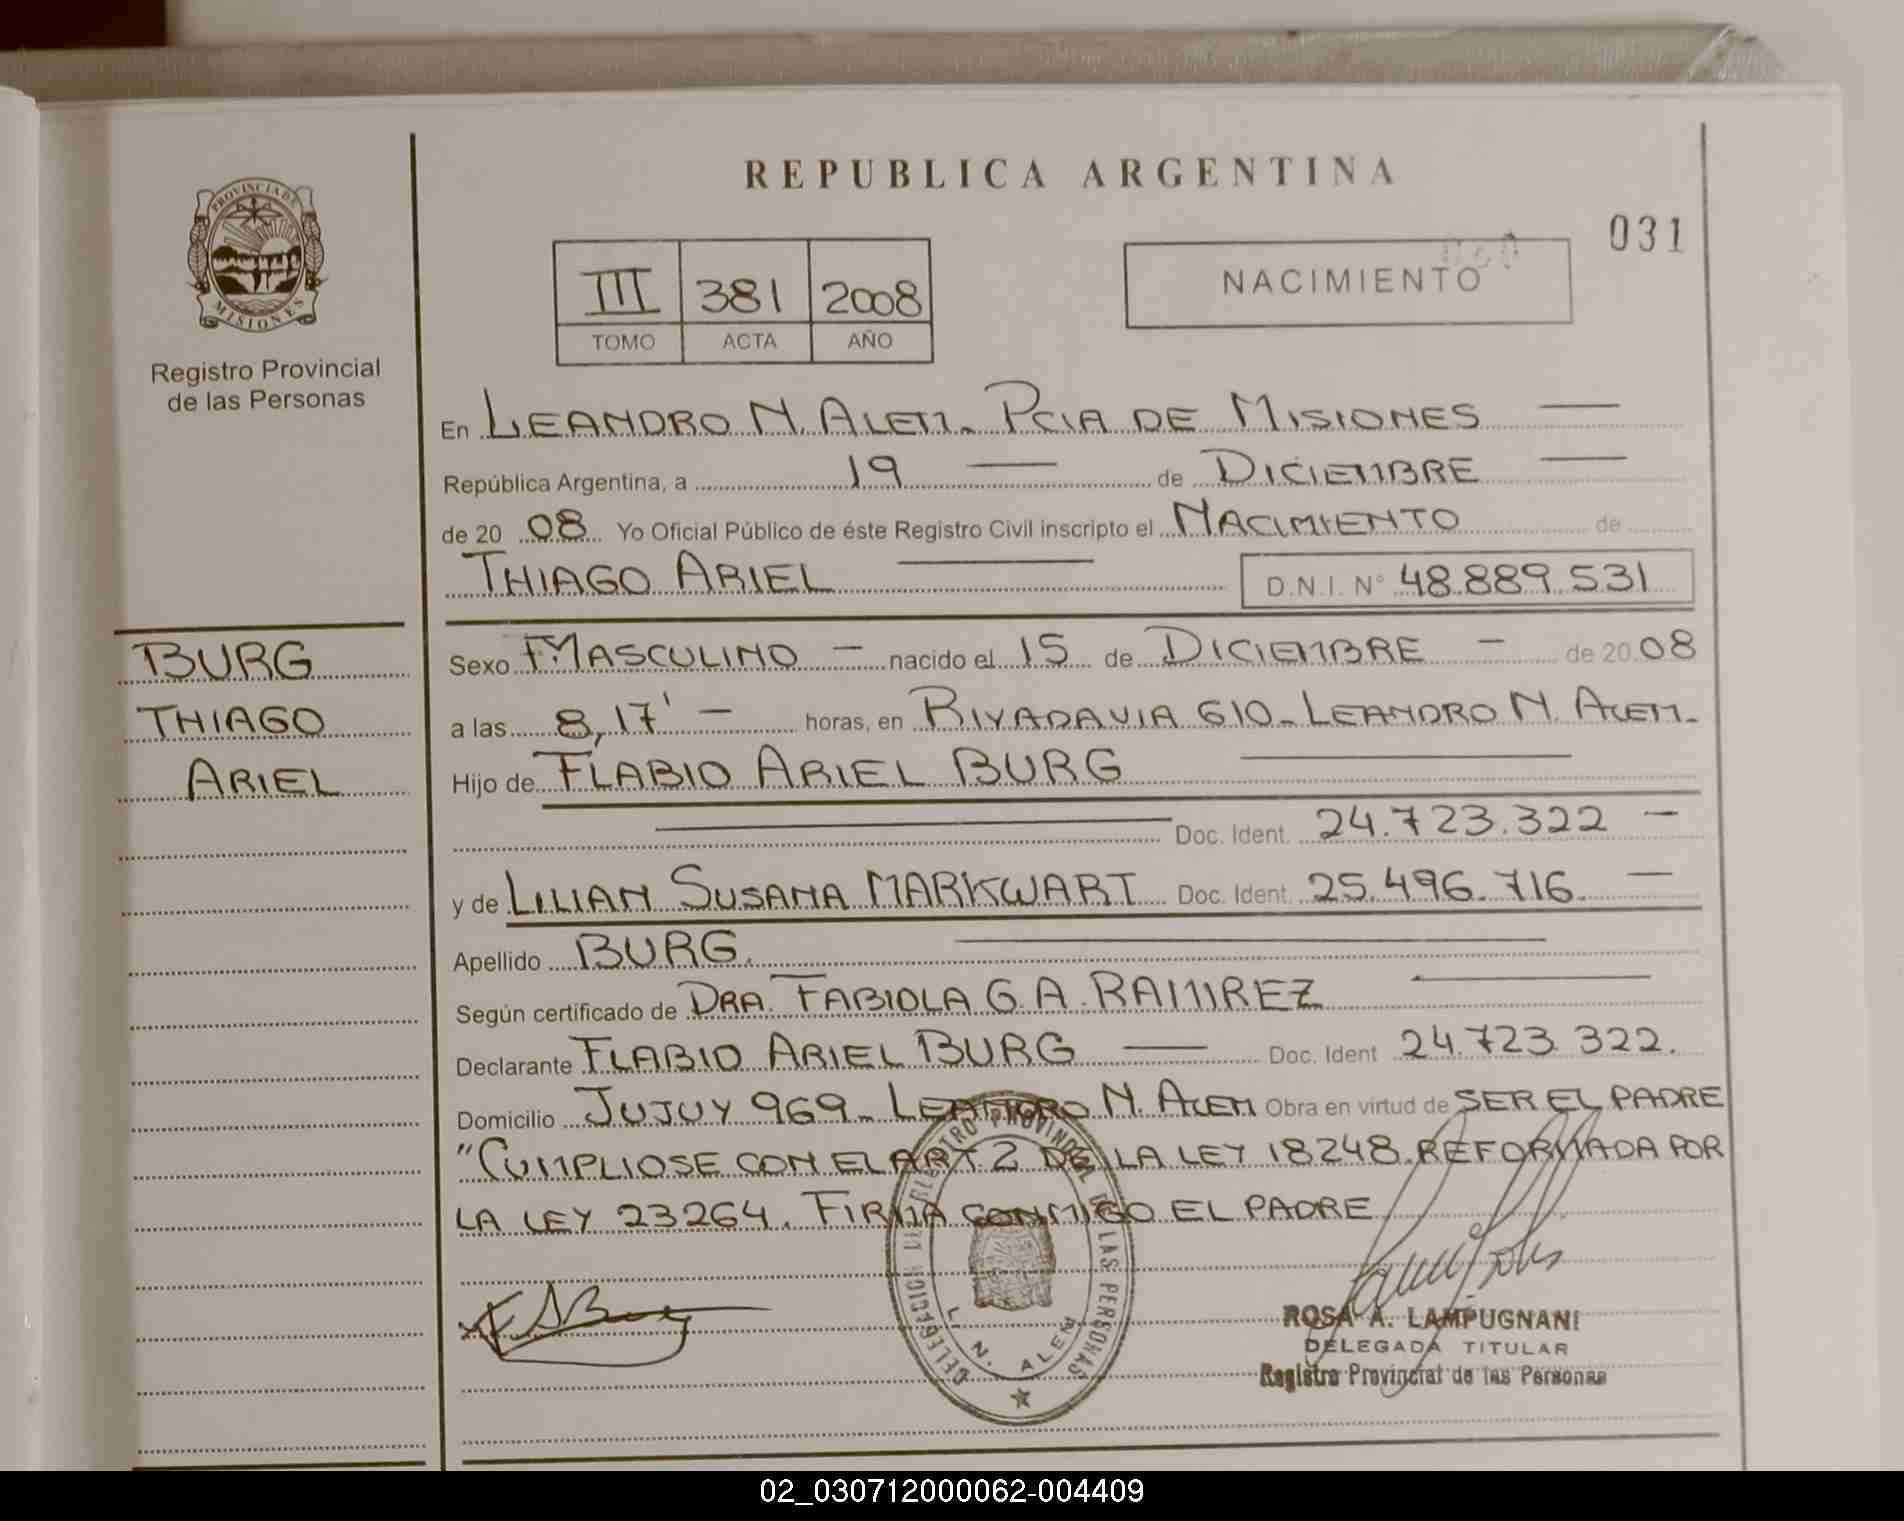 REPUBLICA ARGENTINA
031
PROVINCIA DE
MISIONES
Registro Provincial
de las Personas
III 381 2008
TOMO ACTA AÑO
NACIMIENTO
En LEANDRO N. ALEM. PCIA DE MISIONES
República Argentina, a 19 de DICIEMBRE
de 20 08 Yo Oficial Público de éste Registro Civil inscripto el NACIMIENTO de
THIAGO ARIEL D.N.I. Nº 48.889.531
BURG
THIAGO
ARIEL
Sexo MASCULINO - nacido el 15 de DICIEMBRE - de 20 08
a las 8,17' - horas, en RIVADAVIA 610_ LEANDRO N. ALEM.
Hijo de FLABIO ARIEL BURG
Doc. Ident. 24.723.322 -
y de LILIAN SUSANA MARKWART Doc. Ident. 25.496.716. -
Apellido BURG.
Según certificado de DRA. FABIOLA G.A. RAMIREZ
Declarante FLABIO ARIEL BURG Doc. Ident 24.723.322.
Domicilio JUJUY 969_ LEANDRO N. ALEM Obra en virtud de SER EL PADRE
"CUMPLIOSE CON EL ART. 2 DE LA LEY 18248. REFORMADA POR
LA LEY 23264. FIRMA CONMIGO EL PADRE
DELEGACION DEL REGISTRO PROVINCIAL DE LAS PERSONAS
L. N. ALEM
ROSA A. LAMPUGNANI
DELEGADA TITULAR
Registro Provincial de las Personas
02_030712000062-004409